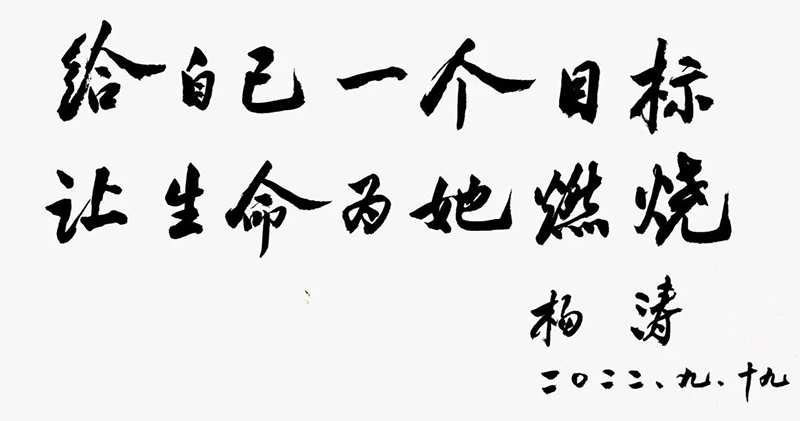 给自己一个目标
让生命为她燃烧
杨涛
二〇二二、九、十九